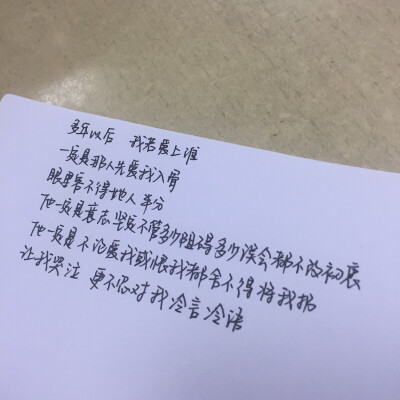 多年以后 我若爱上谁
一定是那人先爱我入骨
眼里容不得他人半分
他一定是意志坚定不管多少阻碍多少误会都不改初衷
他一定是不论爱我或恨我都舍不得将我拐
让我哭泣 更不忍对我冷言冷语